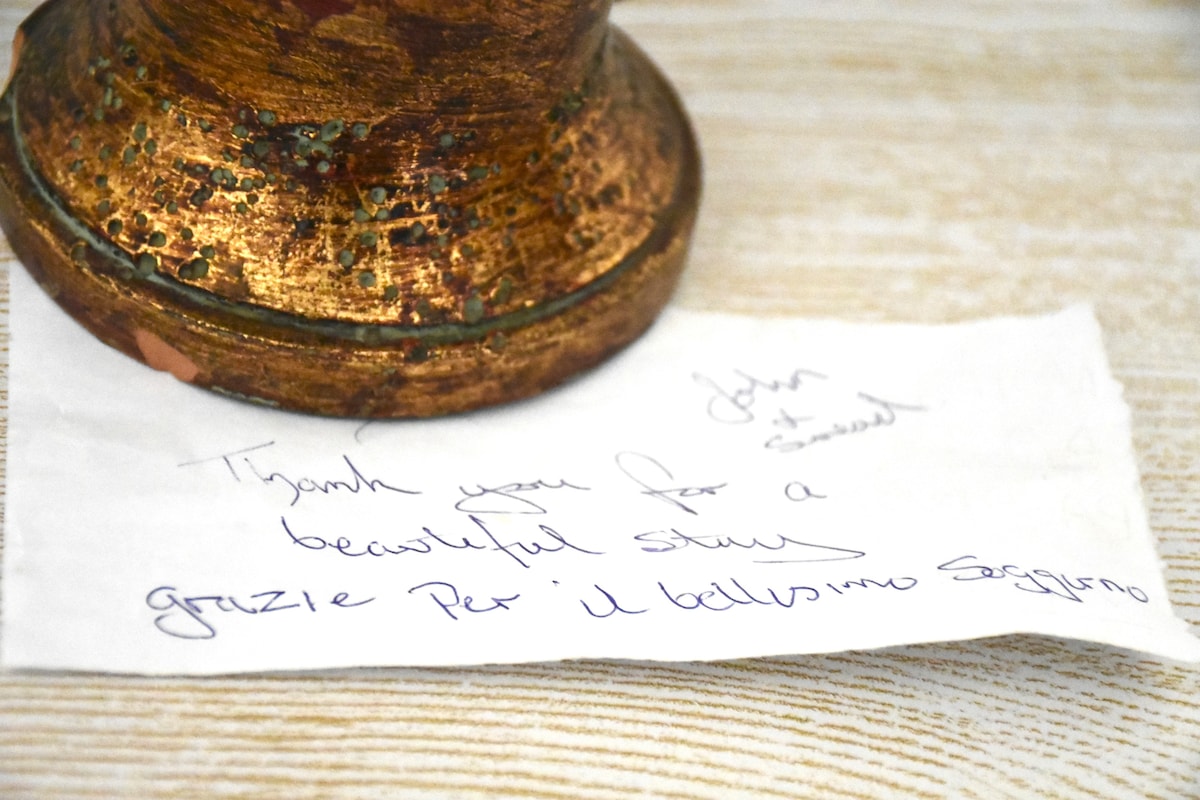 John
+
Thank you for a
beautiful stay
grazie Per il bellisimo Soggirno